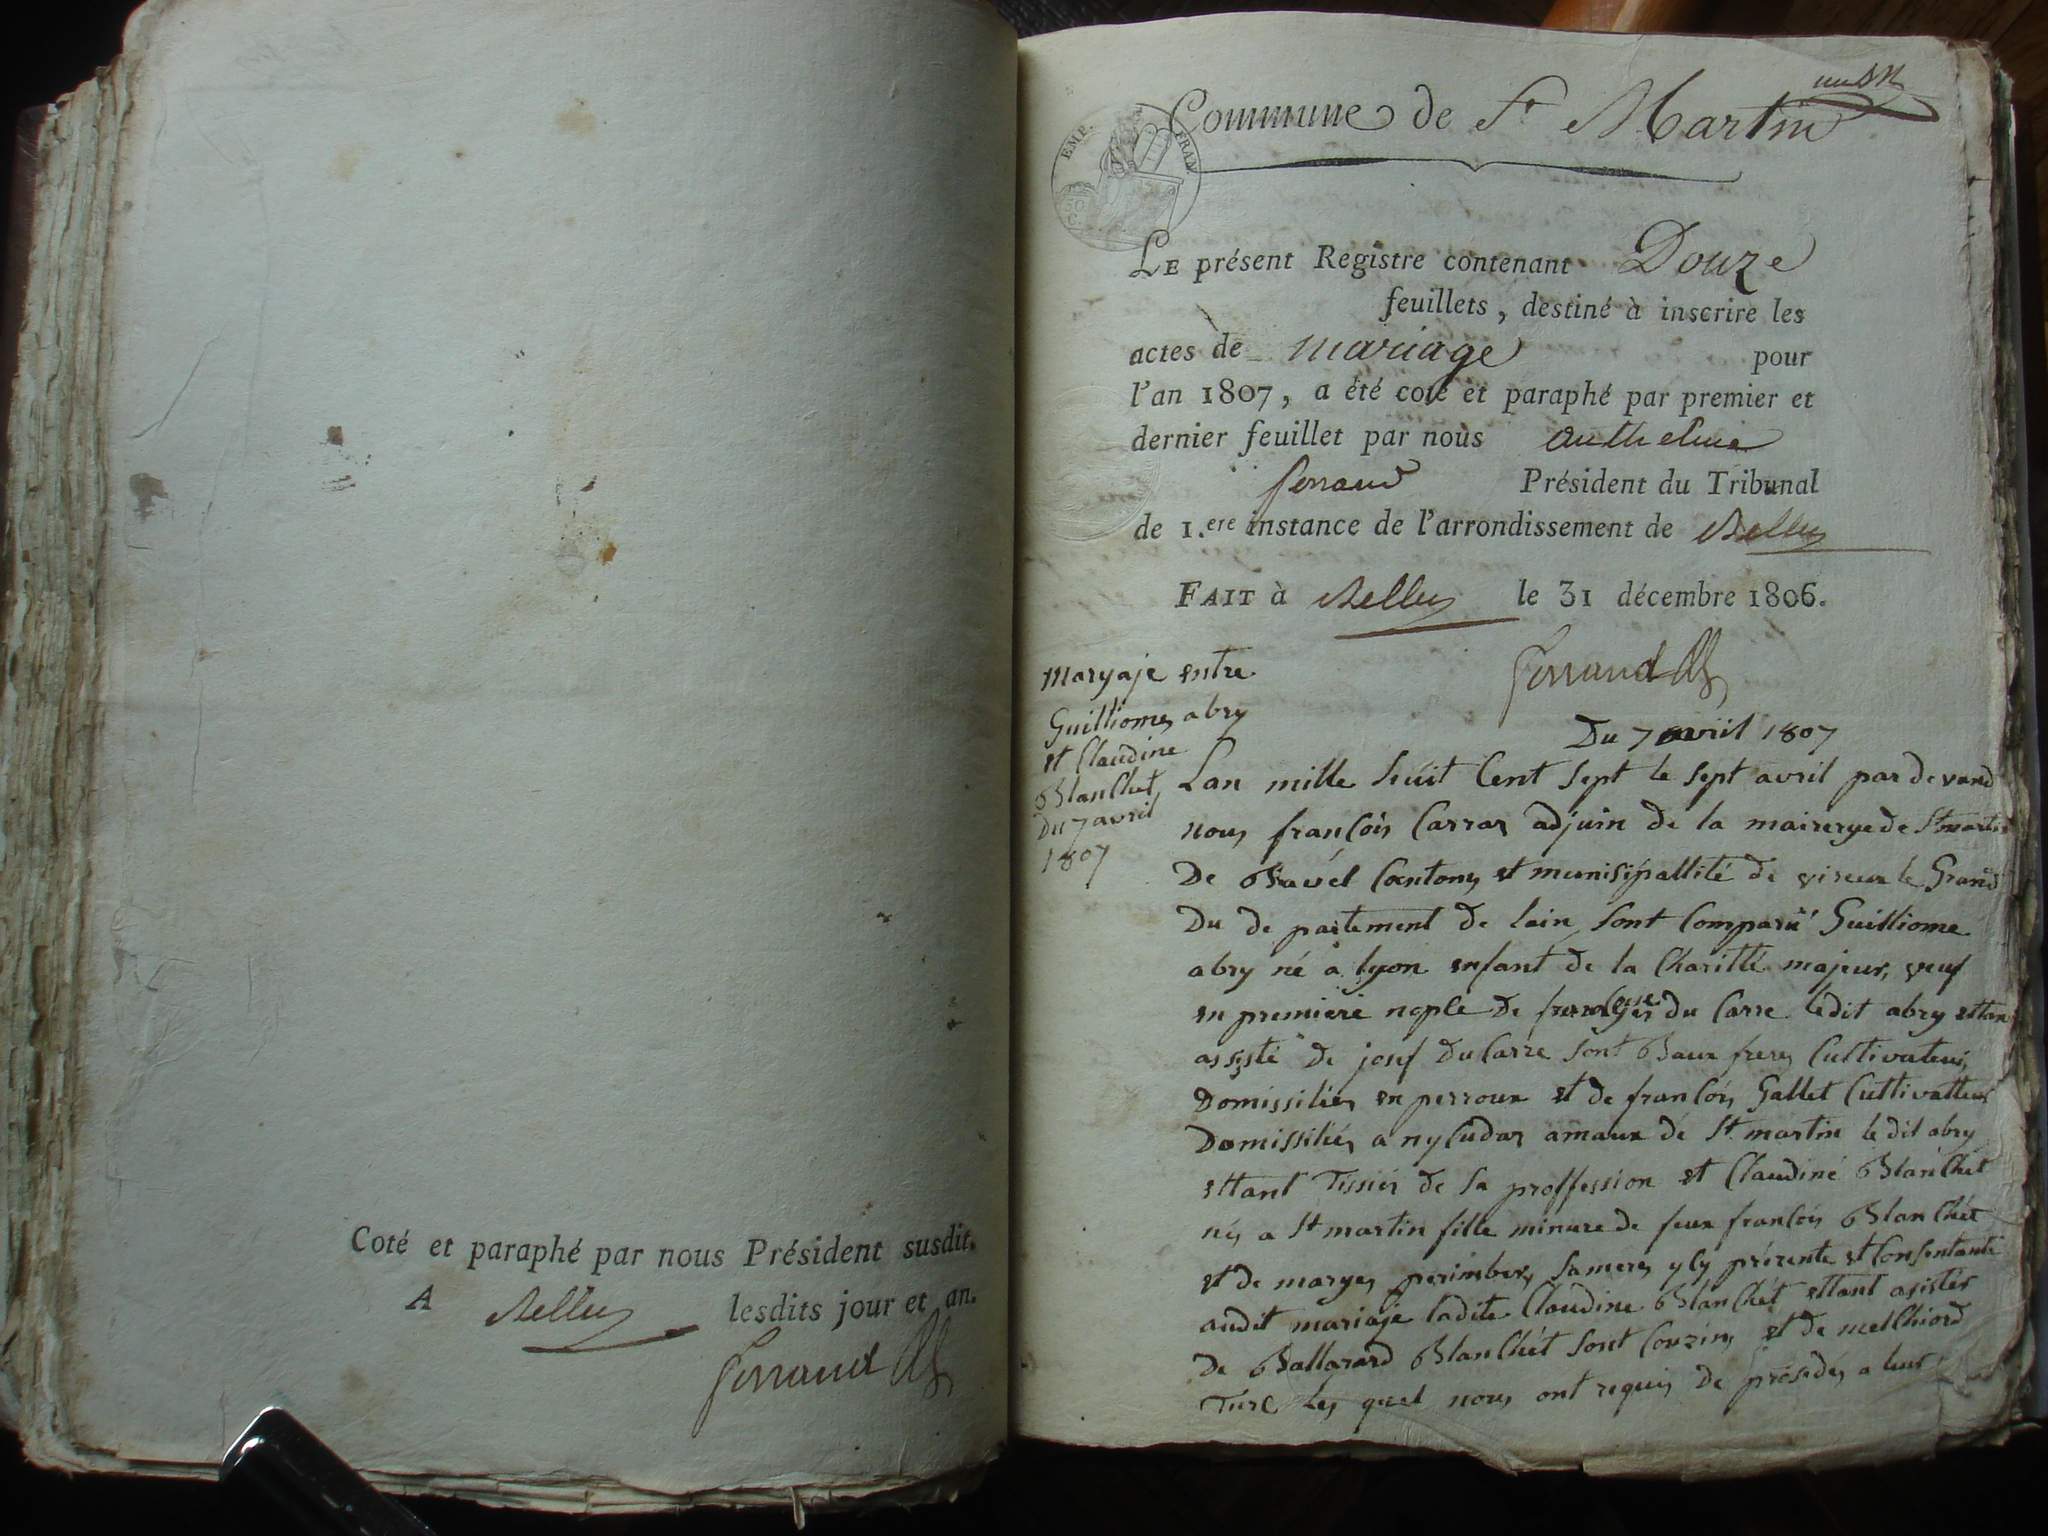 Coté et paraphé par nous Président susdit.
A Belley lesdits jour et an.
Ferrand
Commune de St Martin
EMP. FRAN
50
C.
LE présent Registre contenant Douze
feuillets, destiné à inscrire les
actes de mariage pour
l'an 1807, a été coté et paraphé par premier et
dernier feuillet par nous anthelme
ferrand Président du Tribunal
de 1.ere instance de l'arrondissement de Belley
FAIT à Belley le 31 décembre 1806.
Ferrand
Maryaje entre
Guilliome abry
et Claudine
Blanchet
Du 7 avril
1807
Du 7 avril 1807
Lan mille huit Cent sept le sept avril par devand
nous françois Carrar adjuin de la mairerye de St martin
De Bavel Cantons et munisipallité de virieux le Grand
Du de partement de lain sont Comparu Guilliome
abry né a lyon enfant de la Charitté majeur, veuf
en premiere nople de du Carre ledit abry ettan
assisté de josef DuCarre sont Baux freres Cultivateur
Domissiliés en perroux et de françois Gallet Cultivatteur
Domissiliés a amaux de St martin le dit abry
ettant Tissier de sa proffession et Claudine Blanchet
né a St martin fille minure de feux françois Blanchet
et de marye perimber sa mere y Cy présente et Consentante
audit mariaje ladite Claudine Blanchet ettant asistée
de Ballazard Blanchet sont Couzin et de melchiord
Turc Les quel nous ont requis De proséder a leur